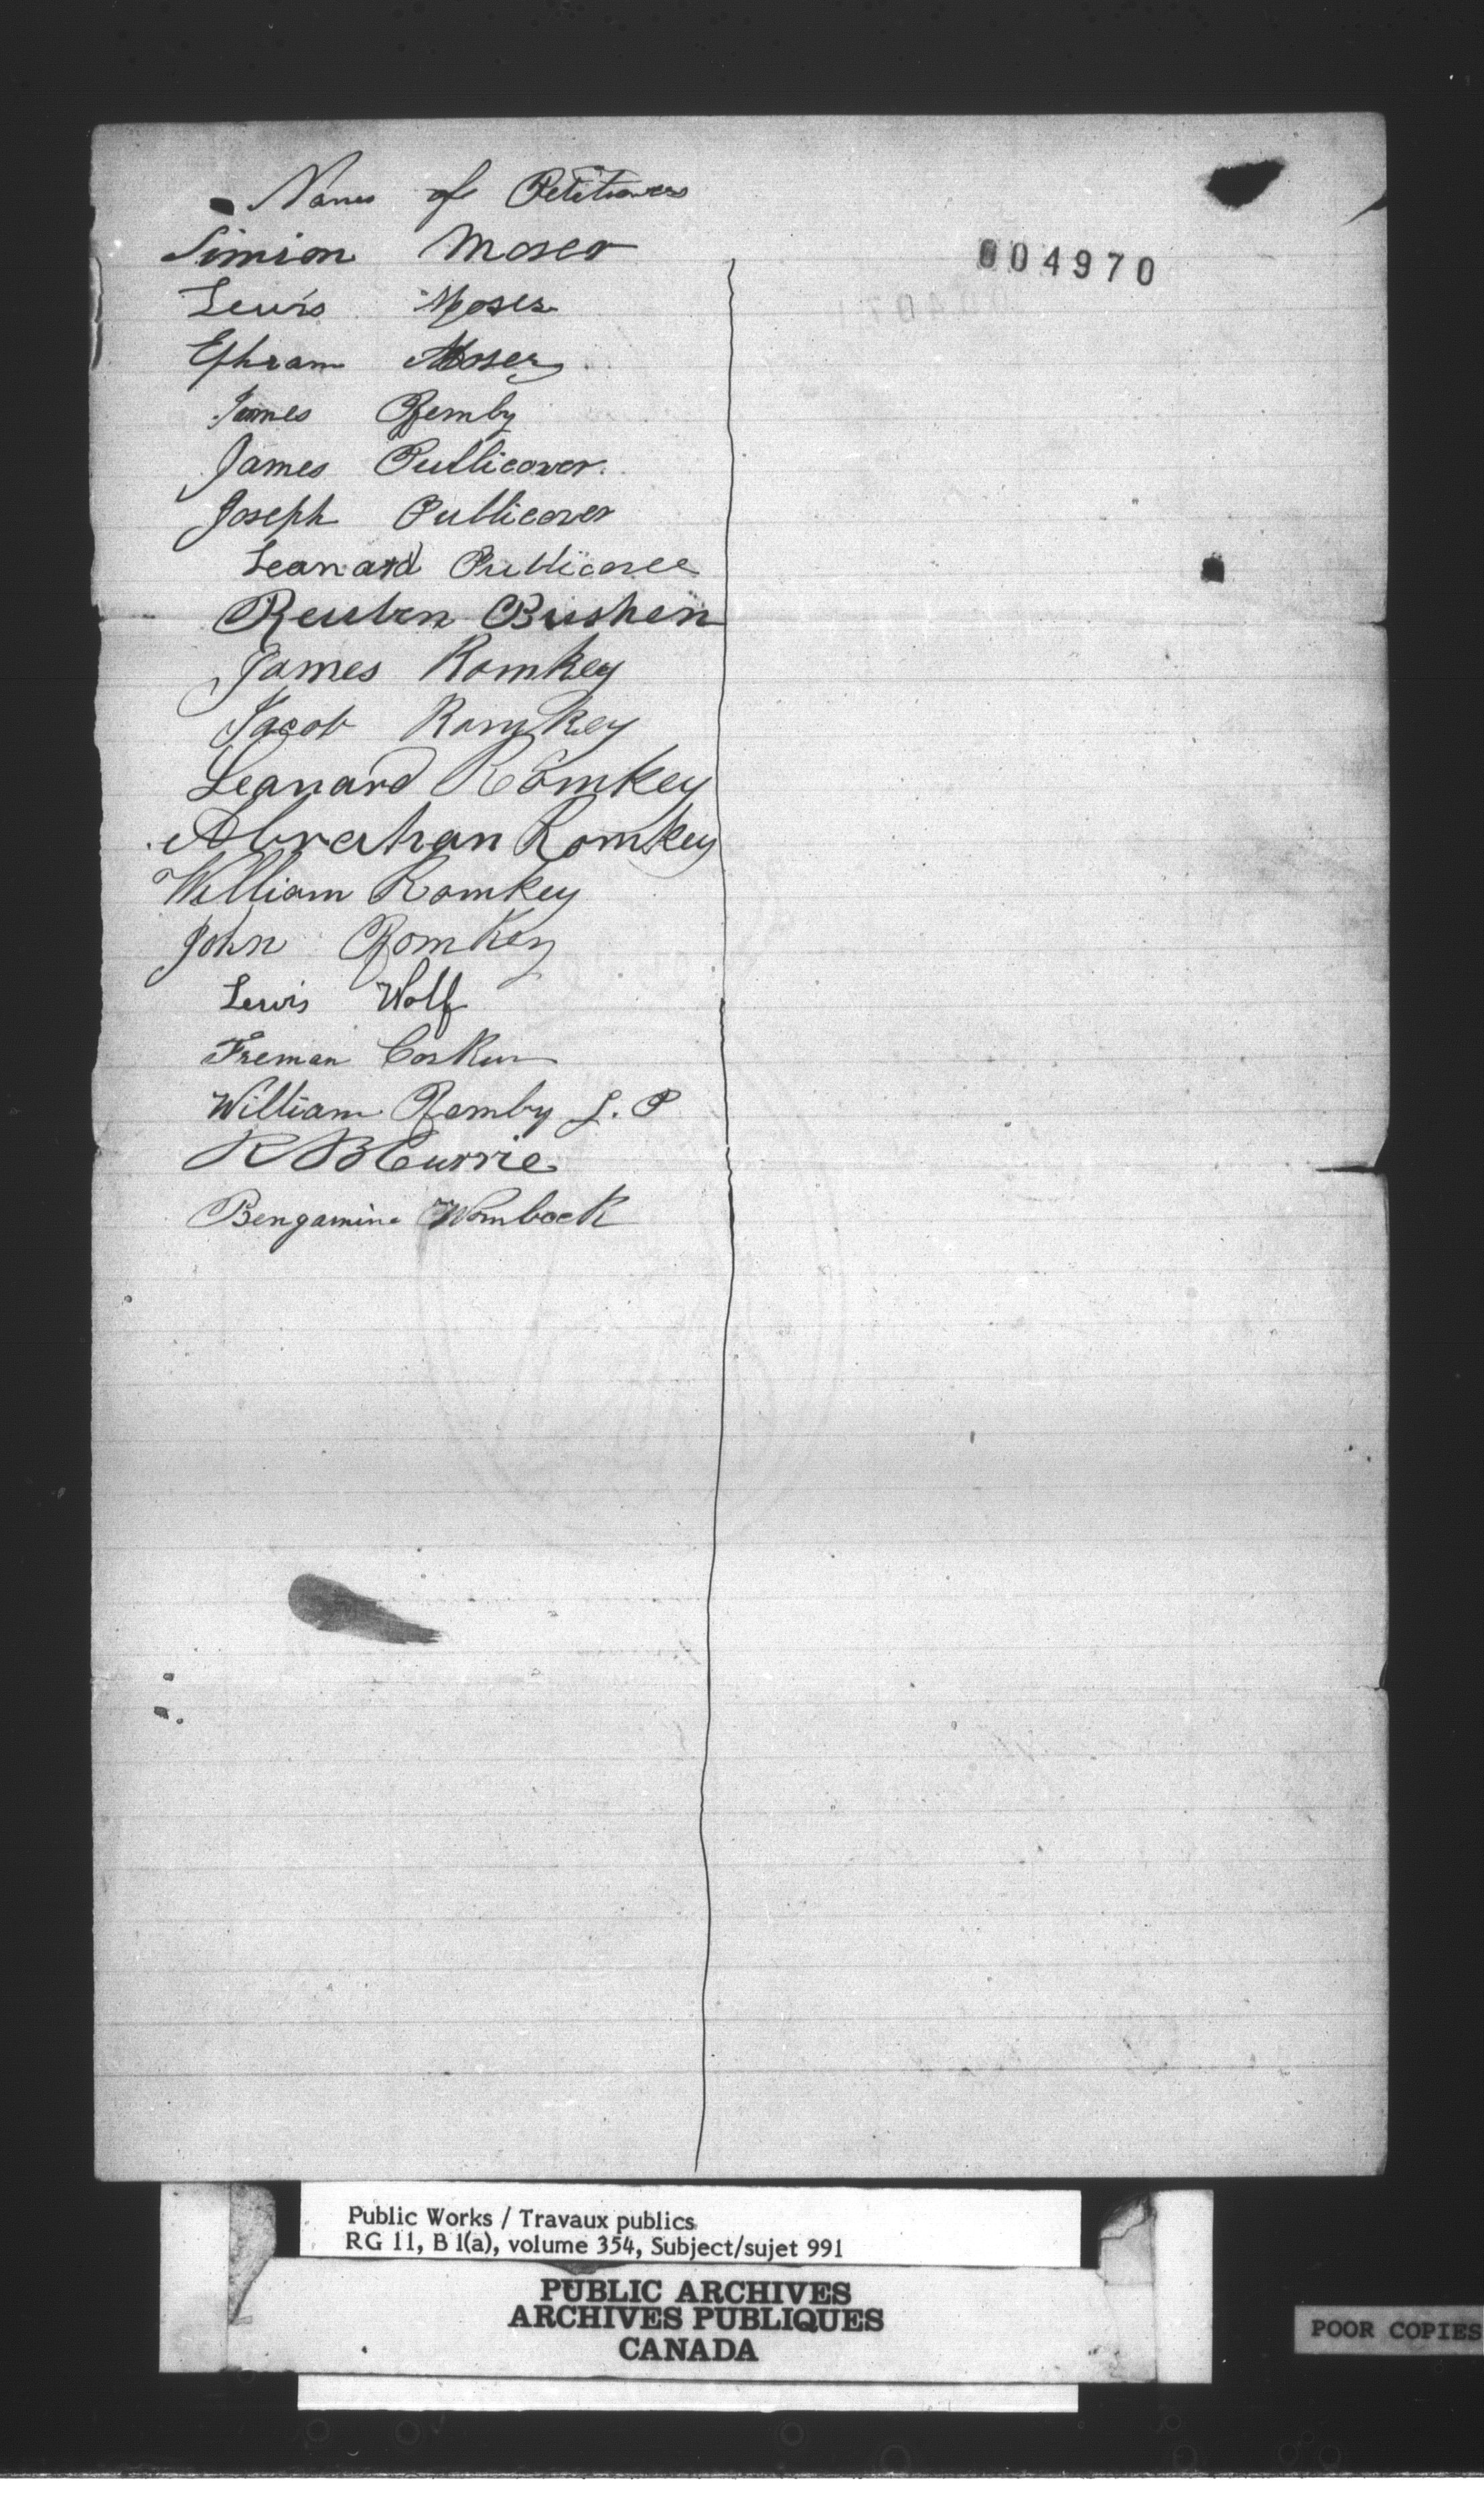 Names of Petitioners
004970
Simion Moser
Lewis Moser
Ephram Moser
James Remby
James Publicover
Joseph Publicover
Leanard Publicover
Reuben Bushen
James Romkey
Jacob Romkey
Leanard Romkey
Abrahan Romkey
William Romkey
John Romkey
Lewis Wolf
Freman Corkum
William Remby J. P
R B Currie
Bengamine Wambock
Public Works / Travaux publics
RG 11, B 1(a), volume 354, Subject/sujet 991
PUBLIC ARCHIVES
ARCHIVES PUBLIQUES
CANADA
POOR COPIES